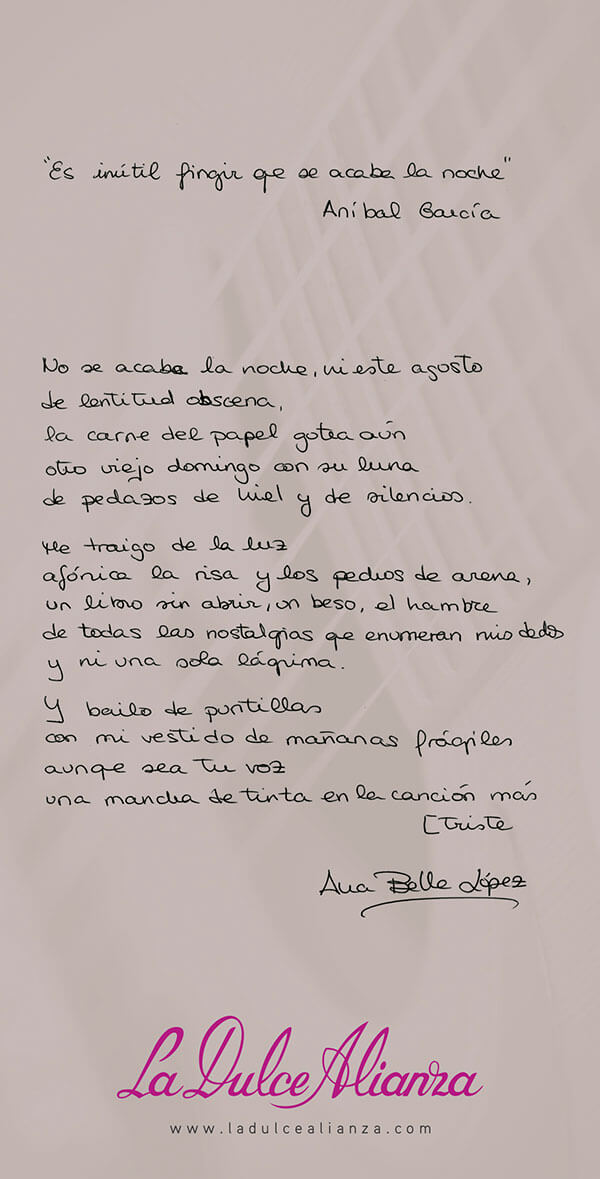 "Es inútil fingir que se acaba la noche"
Aníbal García
No se acaba la noche, ni este agosto
de lentitud obscena,
la carne del papel gotea aún
otro viejo domingo con su luna
de pedazos de hiel y de silencios.
Me traigo de la luz
afónica la risa y los pechos de arena,
un libro sin abrir, un beso, el hambre
de todas las nostalgias que enumeran mis dedos
y ni una sola lágrima.
Y bailo de puntillas
con mi vestido de mañanas frágiles
aunque sea tu voz
una mancha de tinta en la canción más
[triste
Ana Belle López
La Dulce Alianza
www.ladulcealianza.com